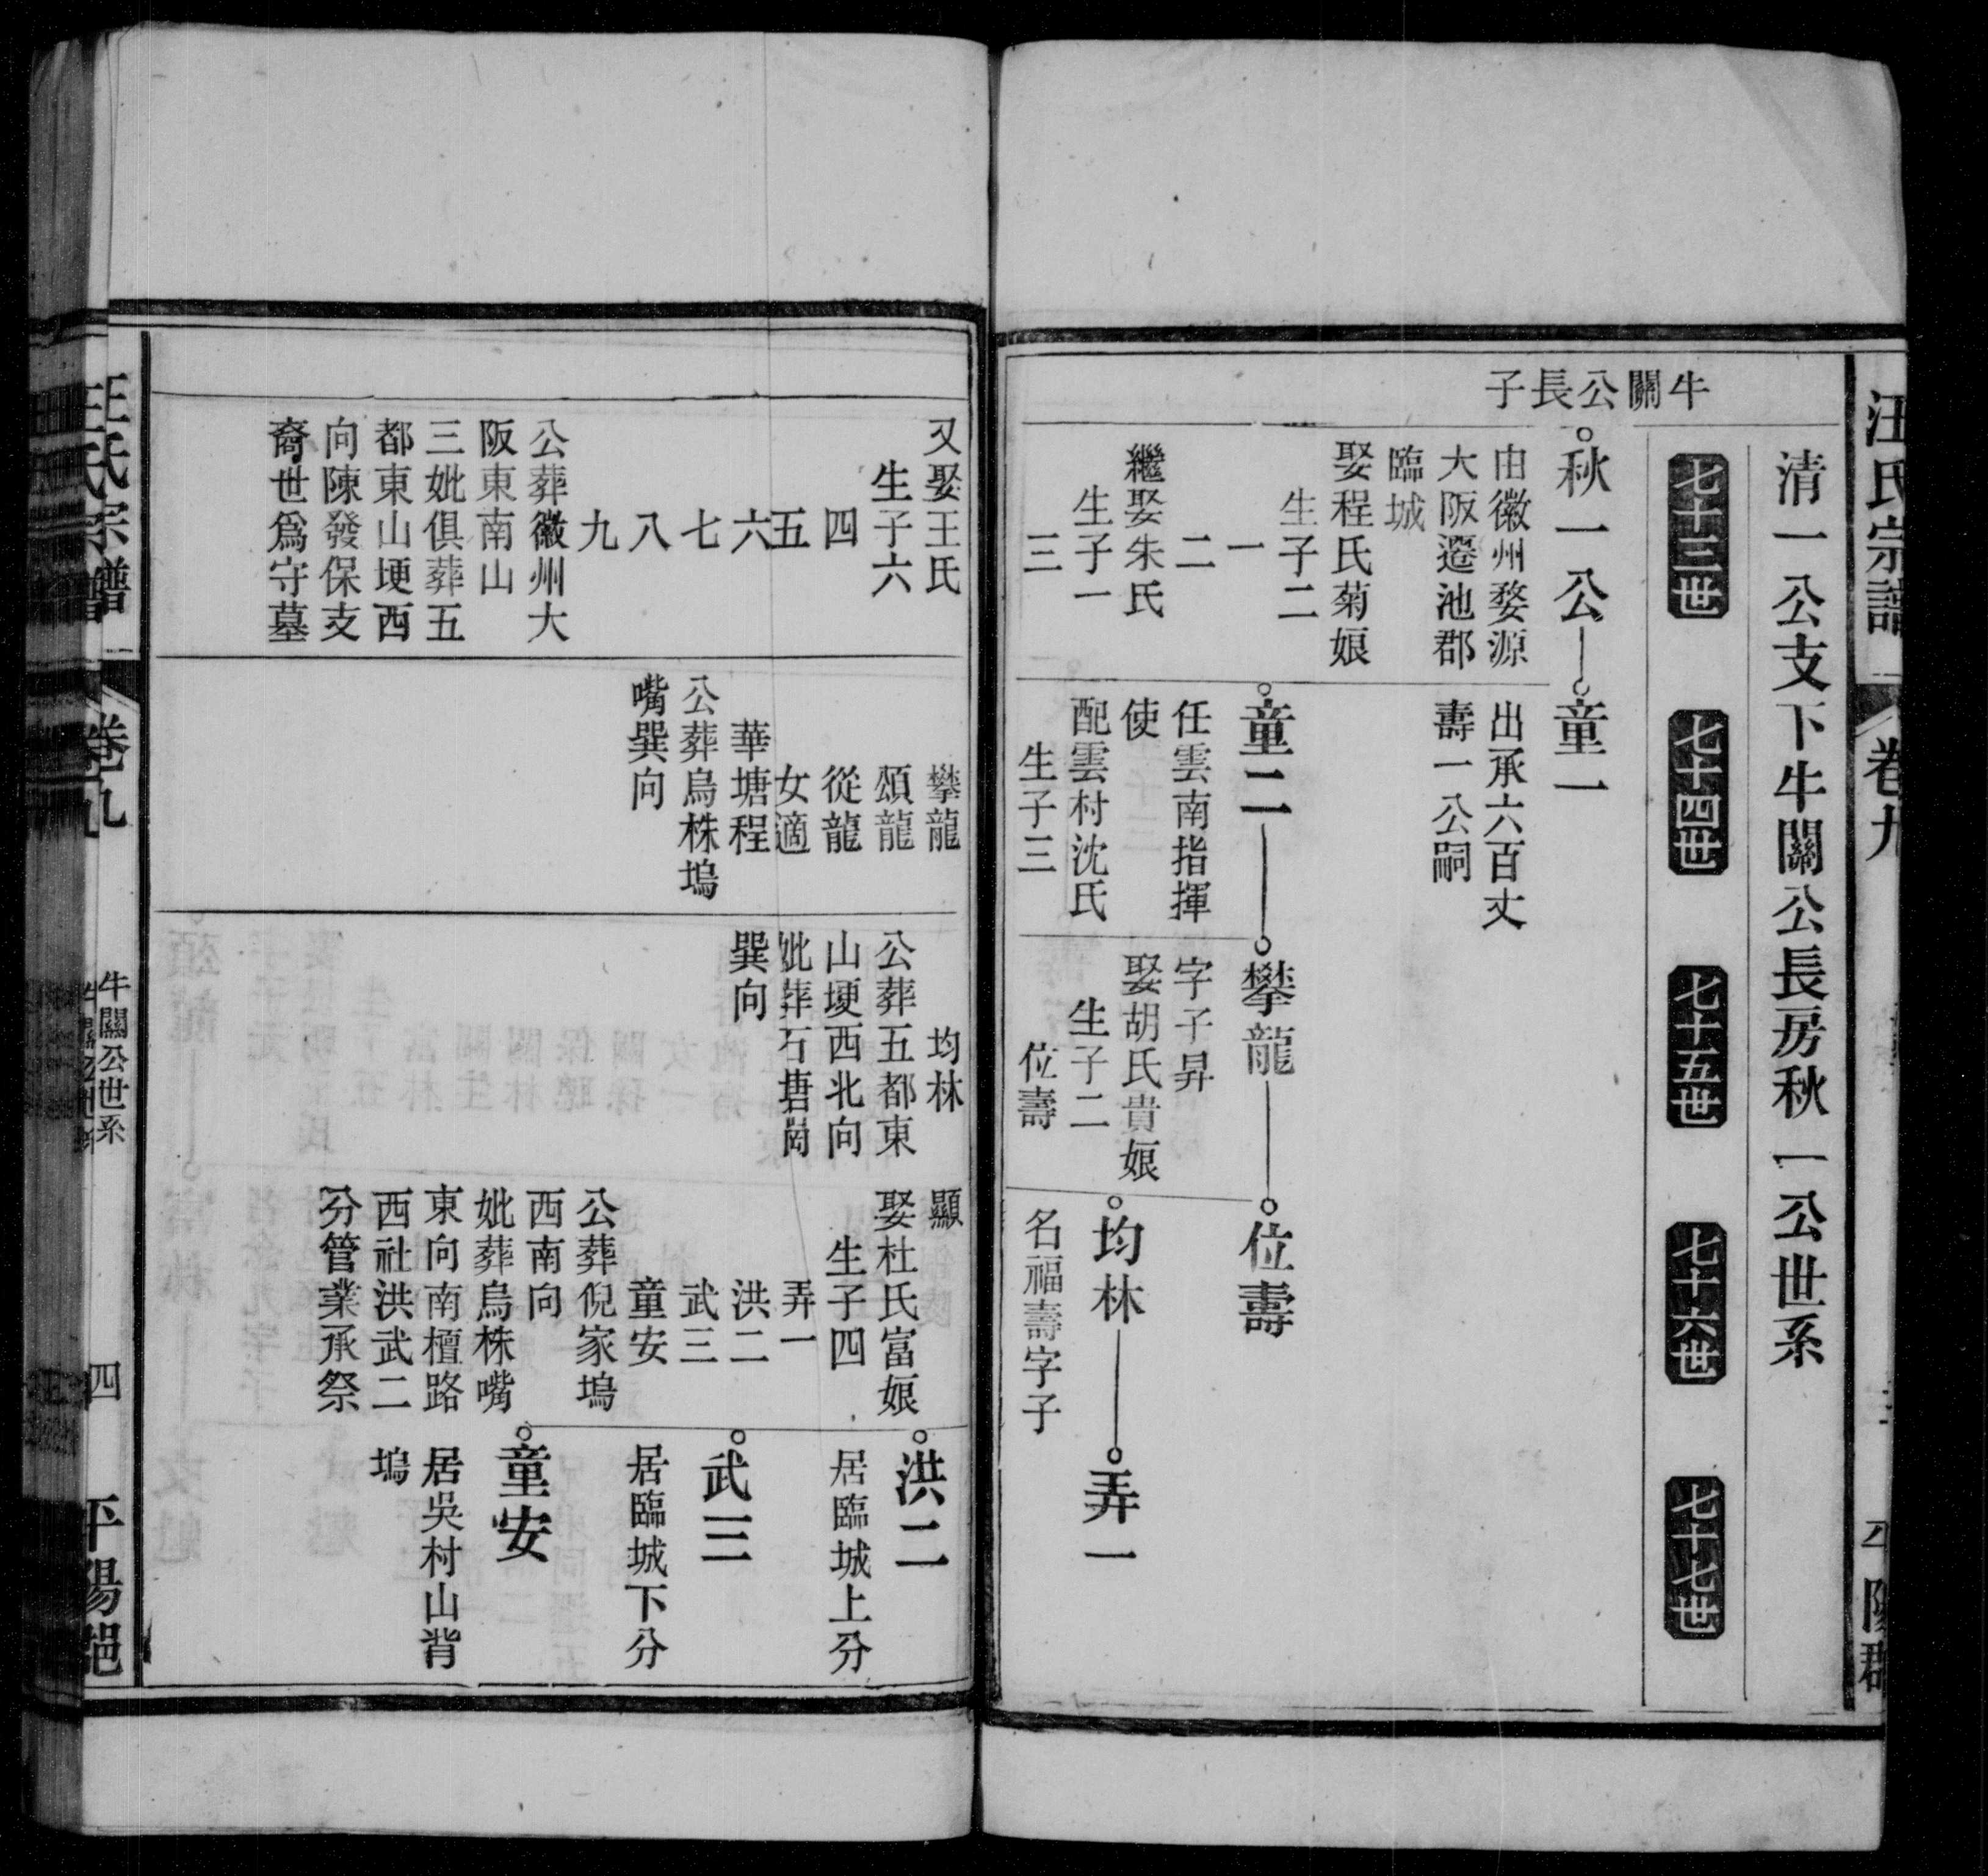 汪氏宗譜
卷九
平陽郡
清一公支下牛關公長房秋一公世系
七十三世
七十四世
七十五世
七十六世
七十七世
牛關公長子
秋一公
由徽州婺源
大阪遷池郡
臨城
娶程氏菊娘
生子二
一
二
繼娶朱氏
生子一
三
童一
出承六百丈
壽一公嗣
童二
任雲南指揮
使
配雲村沈氏
生子三
攀龍
字子昇
娶胡氏貴娘
生子二
位壽
位壽
均林
名福壽字子
弄一
又娶王氏
生子六
四
五
六
七
八
九
公葬徽州大
阪東南山
三妣俱葬五
都東山埂西
向陳發保支
裔世爲守墓
攀龍
頌龍
從龍
女適
華塘程
公葬烏株塢
嘴巽向
均林
公葬五都東
山埂西北向
妣葬石唐崗
巽向
顯
娶杜氏富娘
生子四
弄一
洪二
武三
童安
公葬倪家塢
西南向
妣葬烏株嘴
東向南檀路
西社洪武二
分管業承祭
洪二
居臨城上分
武三
居臨城下分
童安
居吳村山背
塢
汪氏宗譜
卷九
牛關公世系
四
平陽